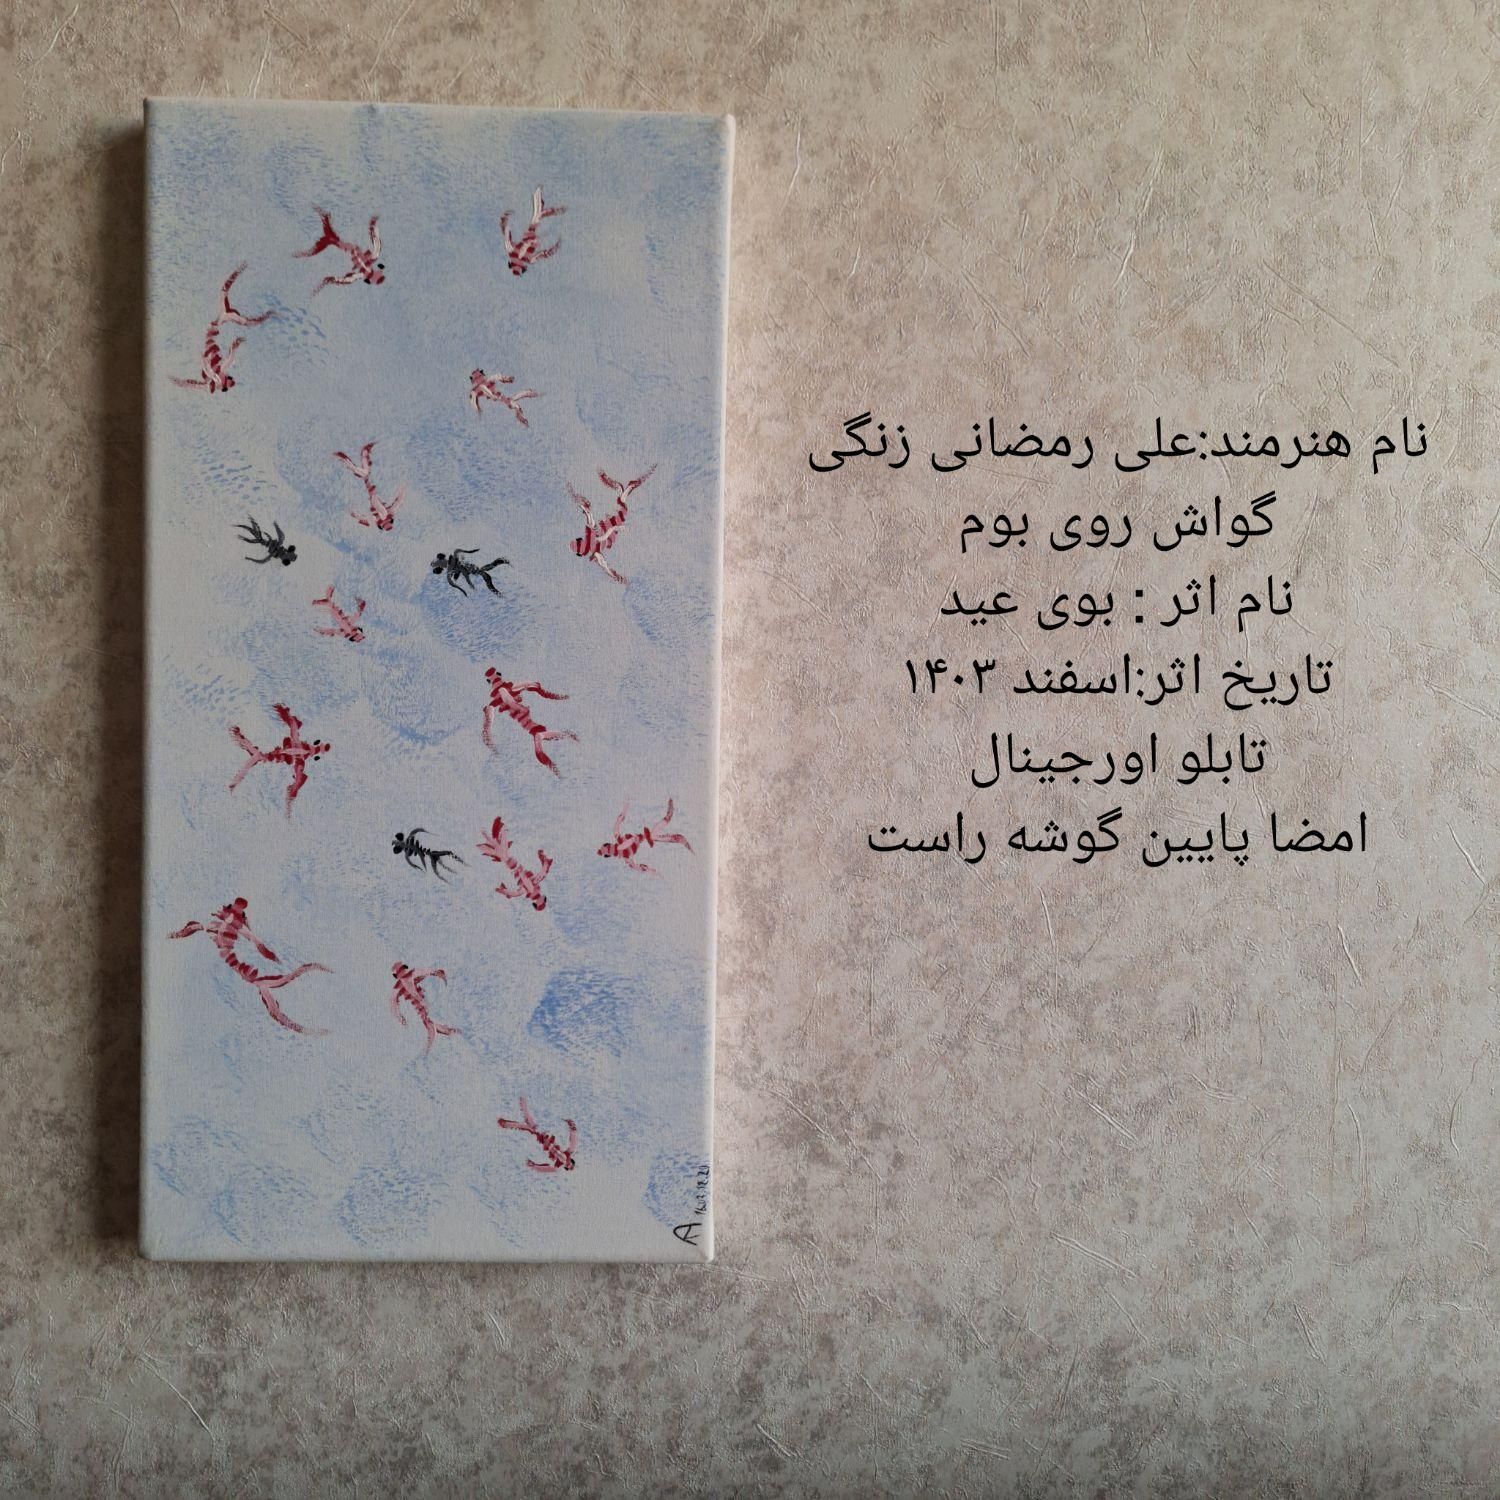 نام هنرمند:علی رمضانی زنگی
گواش روی بوم
نام اثر : بوی عید
تاریخ اثر:اسفند ۱۴۰۳
تابلو اورجینال
امضا پایین گوشه راست
A